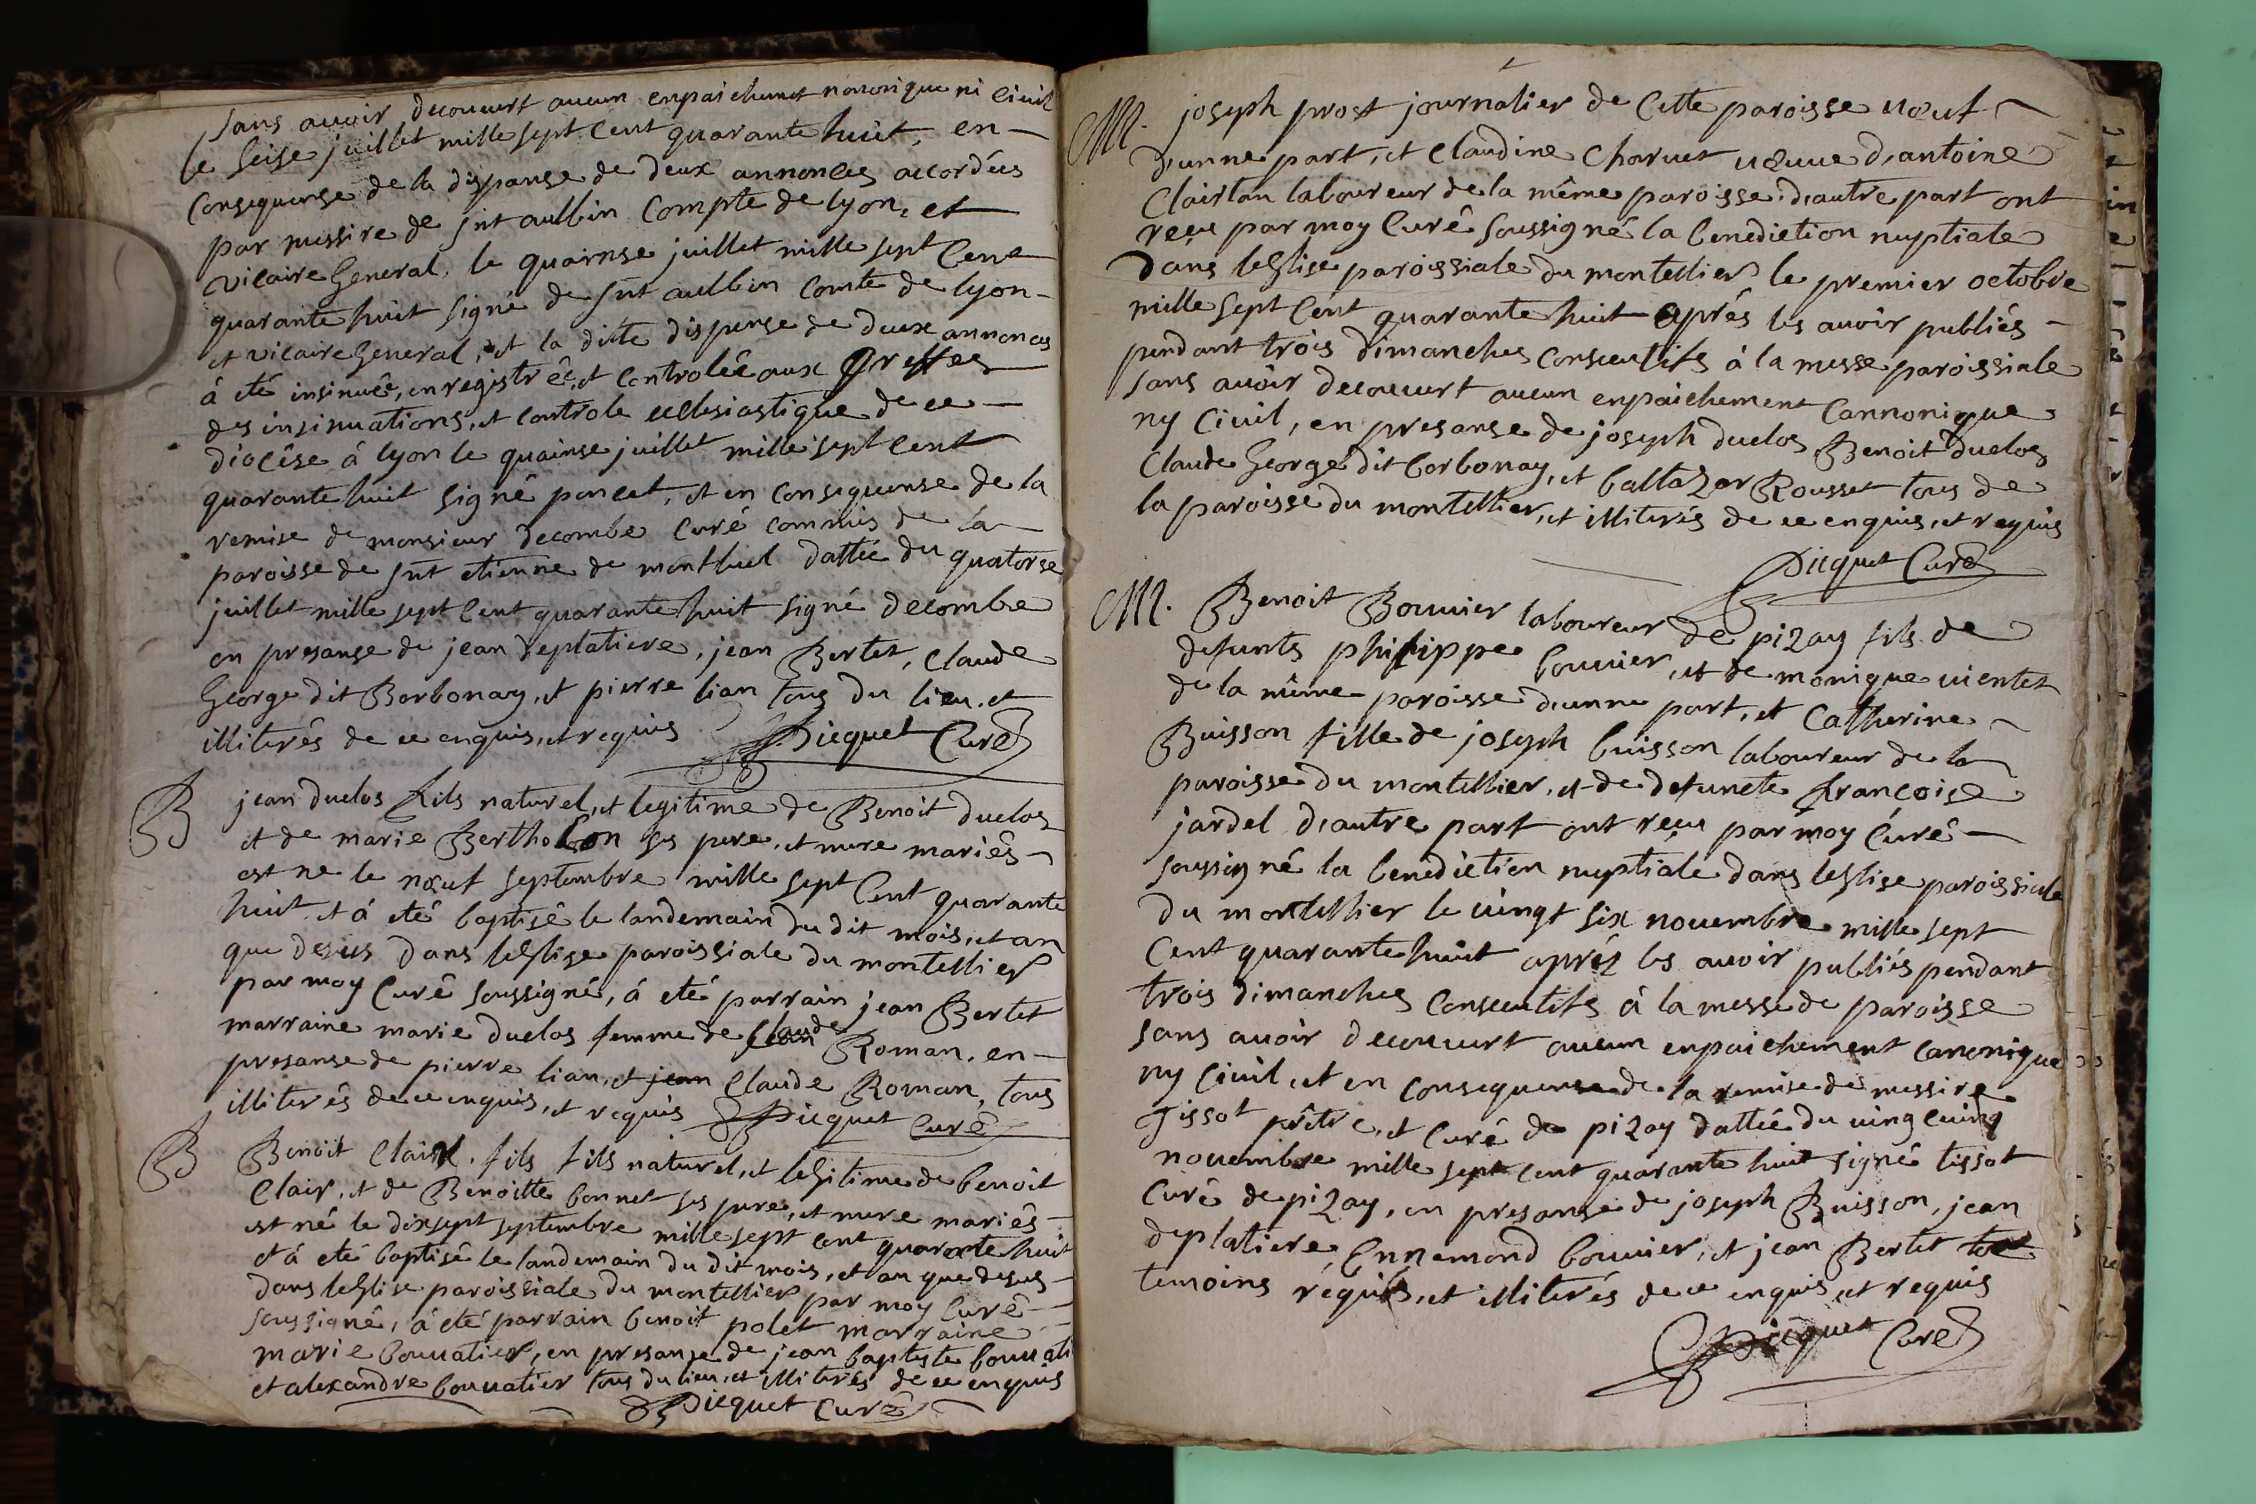 sans avoir decouvert aucun enpaichement nononique ni civil
le seise juillet mille sept cent quarante huit, en
consequense de la dispanse de deux annonces accordées
par messire de snt aulbin compte de lyon, et
vicaire General, le quainse juillet mille sept cent
quarante huit signé de snt aulbin comte de lyon
et vicaire General, et la ditte dispense de deux annonces
à eté insinuée, enregistrée, et controlée aux Greffes
des insinuations, et controle ecclesiastique de ce
diocêse à lyon le quainse juillet mille sept cent
quarante huit signé poncet, et en consequense de la
remise de monsieur decombe curé commis de la
paroisse de snt etienne de montluel dattée du quatorse
juillet mille sept cent quarante huit signé decombe
en presanse de jean deplatiere, jean Bertet, claude
George dit Borbonay, et pierre lian tous du lieu, et
illiterés de ce enquis, et requis Dicquet Curé
B jean duclos fils naturel, et legitime de Benoit duclos
et de marie Bertholon ses pere, et mere mariés
est ne le nœuf septembre mille sept Cent quarante
huit et à eté baptisé le landemain du dit mois, et an
que desus dans leglise paroissiale du montellier
par moy Curé soussigné, à eté parrain jean Bertet
marraine marie duclos femme de claude Roman, en
presanse de pierre lian, et jean Claude Roman, tous
illiterés de ce enquis, et requis Dicquet Curé
B Benoit Clair, fils fils naturel, et legitime de benoit
Clair, et de Benoitte bonnet ses pere, et mere mariés
est né le dixsept septembre mille sept cent quarante huit
et à eté baptisé le landemain du dit mois, et an que desus
dans leglise paroissiale du montellier par moy Curé
soussigné, à eté parrain benoit polet marraine
marie bouvatier, en presanse de jean baptiste bouvati
et alexandre bouvatier tous du lieu, et illiterés de ce enquis
Dicquet Curé
M. joseph prost journalier de Cette paroisse vœuf
d'unne part, et Claudine Charvet vœuve d'antoine
Clairtan laboureur de la même paroisse d'autre part ont
reçu par moy Curé soussigné la benediction nuptiale
dans leglise paroissiale du montellier le premier octobre
mille sept Cent quarante huit aprés les avoir publiés
pendant trois dimanches consecutifs à la messe paroissiale
sans avoir decouvert aucun enpaichement Cannonique
ny Civil, en presanse de joseph duclos Benoit duclos
Claude George dit borbonay, et baltazar Rousset tous de
la paroisse du montellier, et illiterés de ce enquis, et requis
Dicquet Curé
M. Benoit Bouvier laboureur de pizay fils de
defunts philippe bouvier, et de monique vientet
de la même paroisse d'unne part, et Catherine
Buisson fille de joseph buisson laboureur de la
paroisse du montellier, et de defuncte françoise
jardel d'autre part ont reçu par moy Curé
soussigné la benediction nuptiale dans leglise paroissiale
du montellier le vingt six novembre mille sept
Cent quarante huit apréz les avoir publiés pendant
trois dimanches Consecutifs à la messe de paroisse
sans avoir decouvert aucun enpaichement canonique
ny Civil, et en consequense de la remise de messire
Tissot prêtre, et Curé de pizay dattée du vingt cinq
novembre mille sept cent quarante huit signé tissot
Curé de pizay, en presanse de joseph Buisson, jean
deplatiere Ennemond bouvier, et jean Bertet
temoins requis, et illiterés de ce enquis, et requis
Dicquet Curé